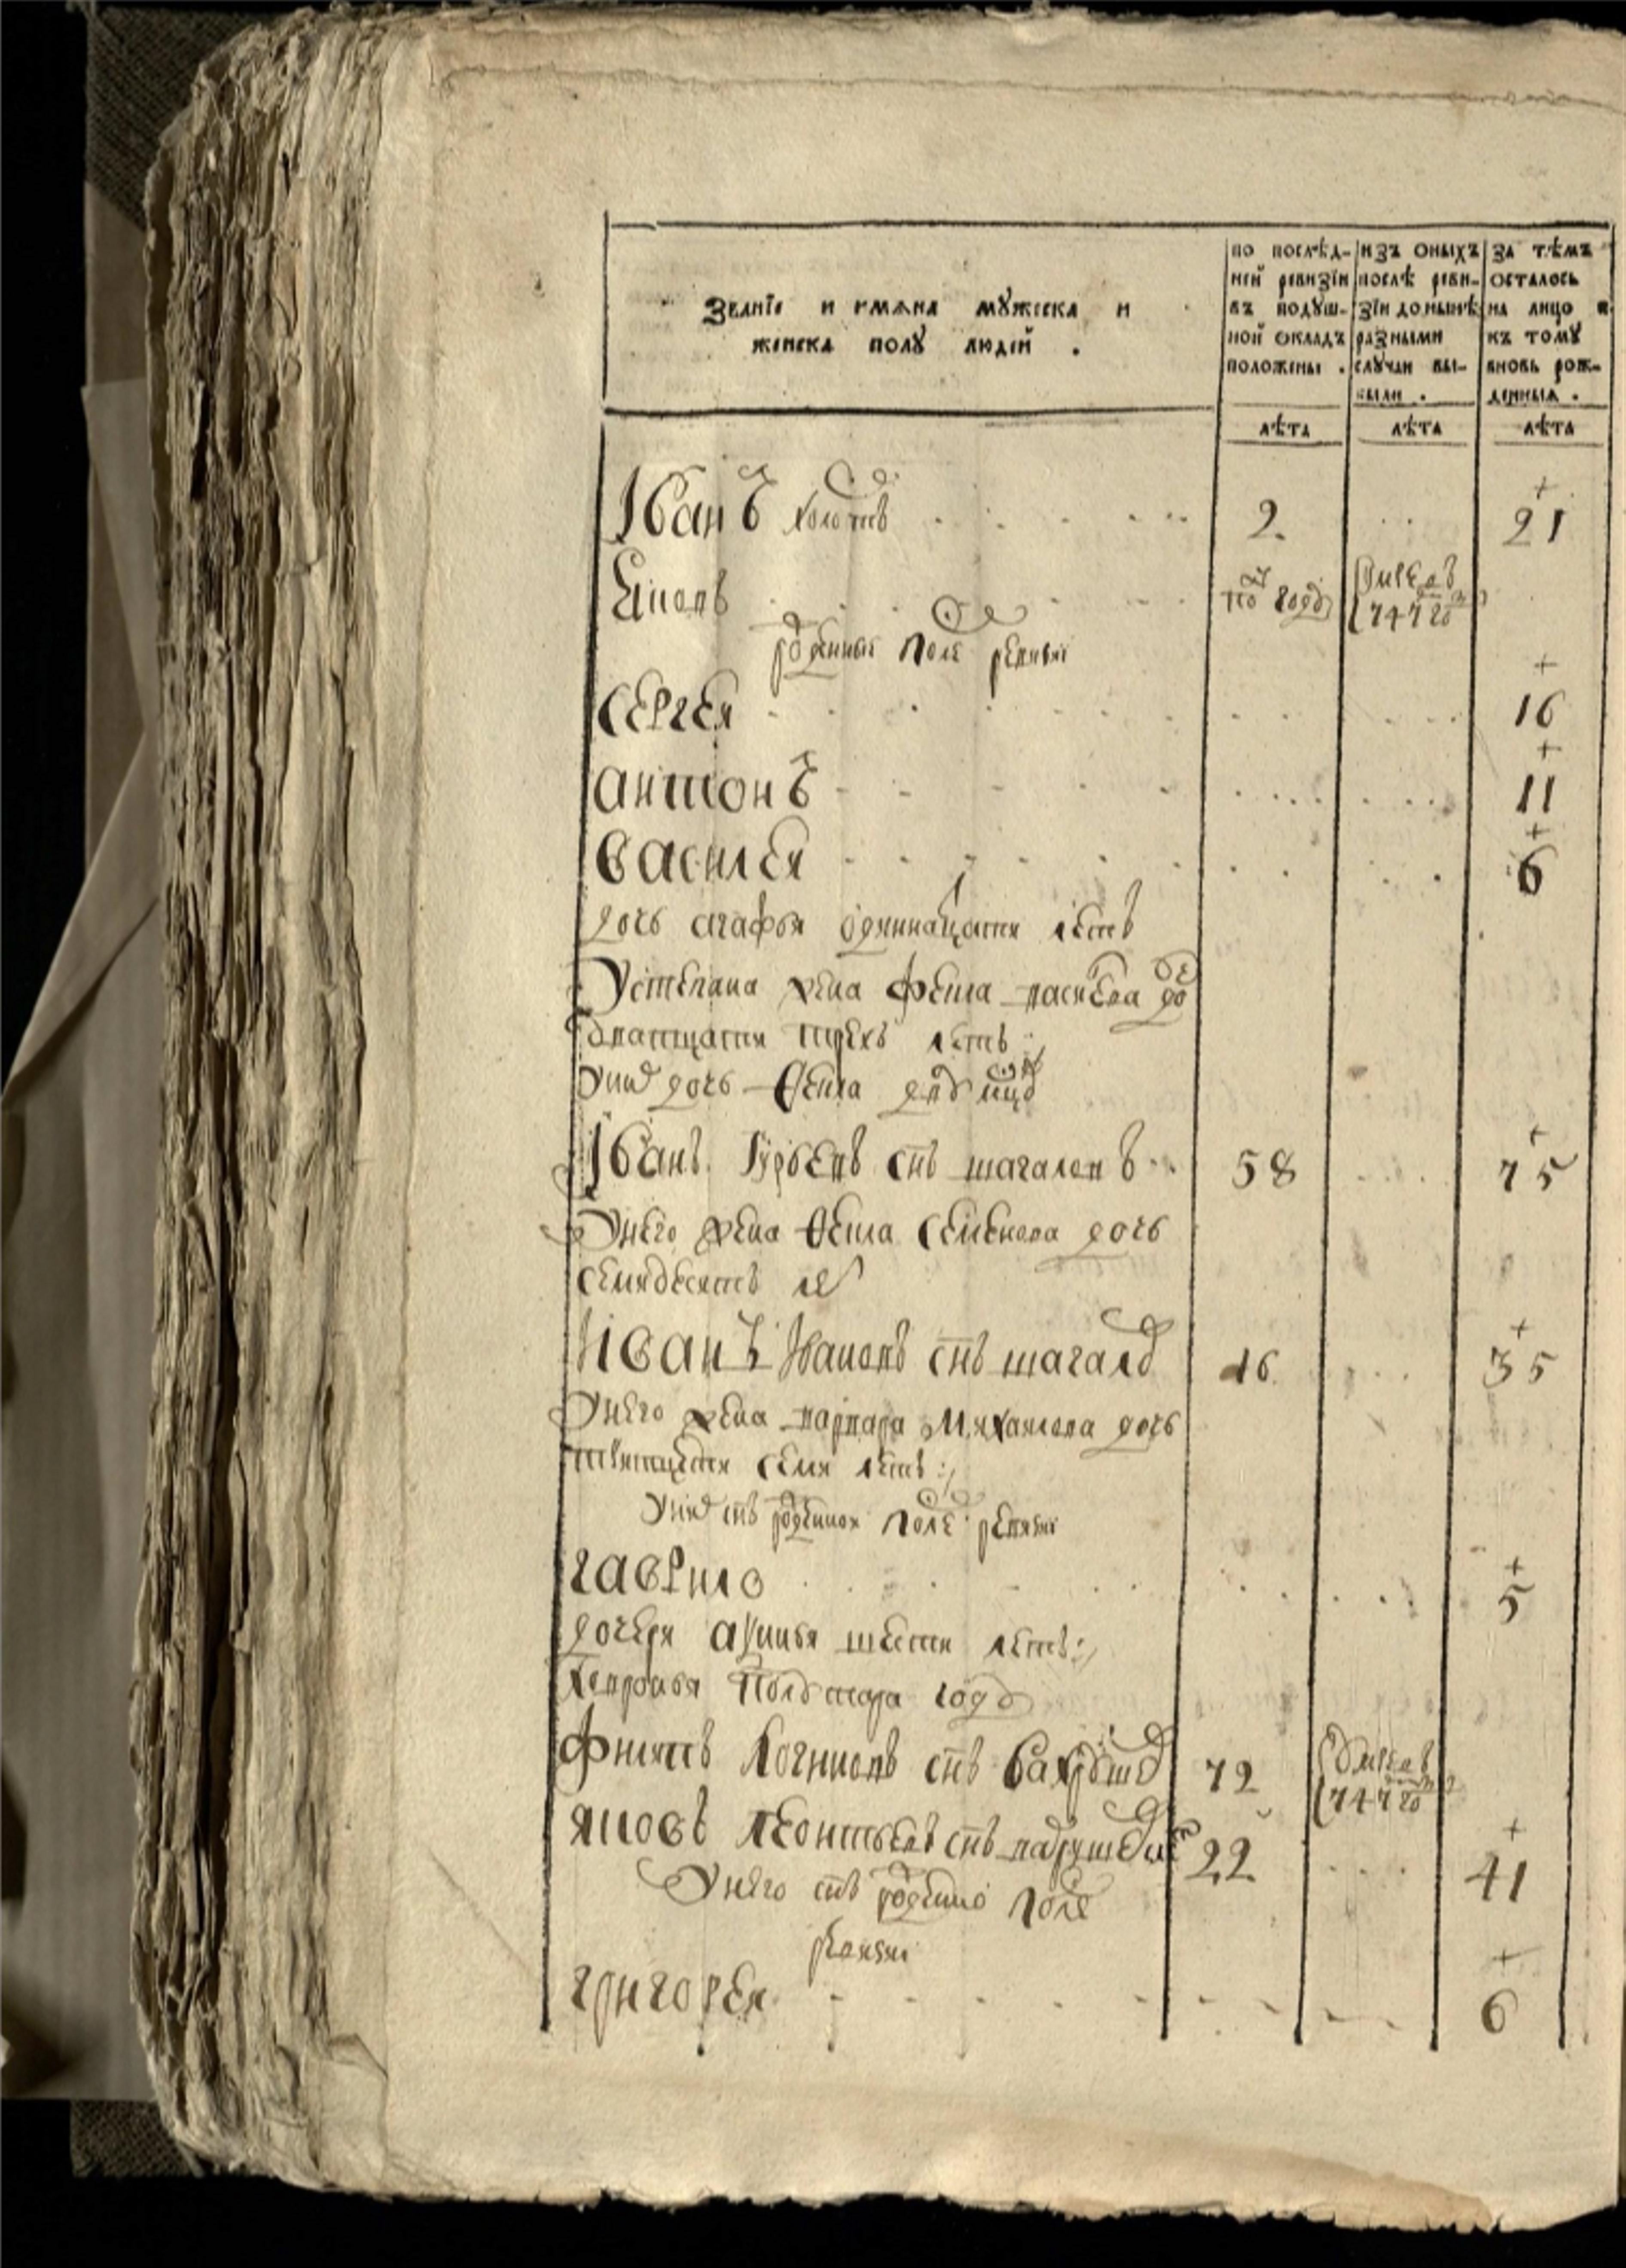 Званїе и имѧна мꙋжеска и
женска полꙋ людей .
по послѣд-
ней ревизїи
въ подꙋш-
ной окладъ
положены .
изъ оныхъ
послѣ реви-
зїи до нынѣ
разными
случаи вы-
были .
за тѣмъ
осталось
на лицо и
къ тому
вновь рож-
денныѧ .
лѣта лѣта лѣта
Іванъ холостъ 2 21
полу году умре въ 747 го
рожденные после ревизии
Сергей 16
антонъ 11
василей 6
дочь агафья одиннатцати летъ
У степана жена фекла
дватцати трехъ летъ
у них дочь Фекла дву
Іванъ Гурьевъ снъ шагаловъ 58 75
У него жена Фекла Семенова дочь
семидесятъ ле
Иванъ Ивановъ снъ шагало 16 35
У него жена варвара Михаилова дочь
тритцети семи летъ
у них снъ рожденной после ревизии
гаврило 5
дочери шести летъ
полутора году
снъ 72 умре въ 747 го
яковъ леонтьевъ снъ 22 41
У него снъ рожденно после
ревизии
григорей 6